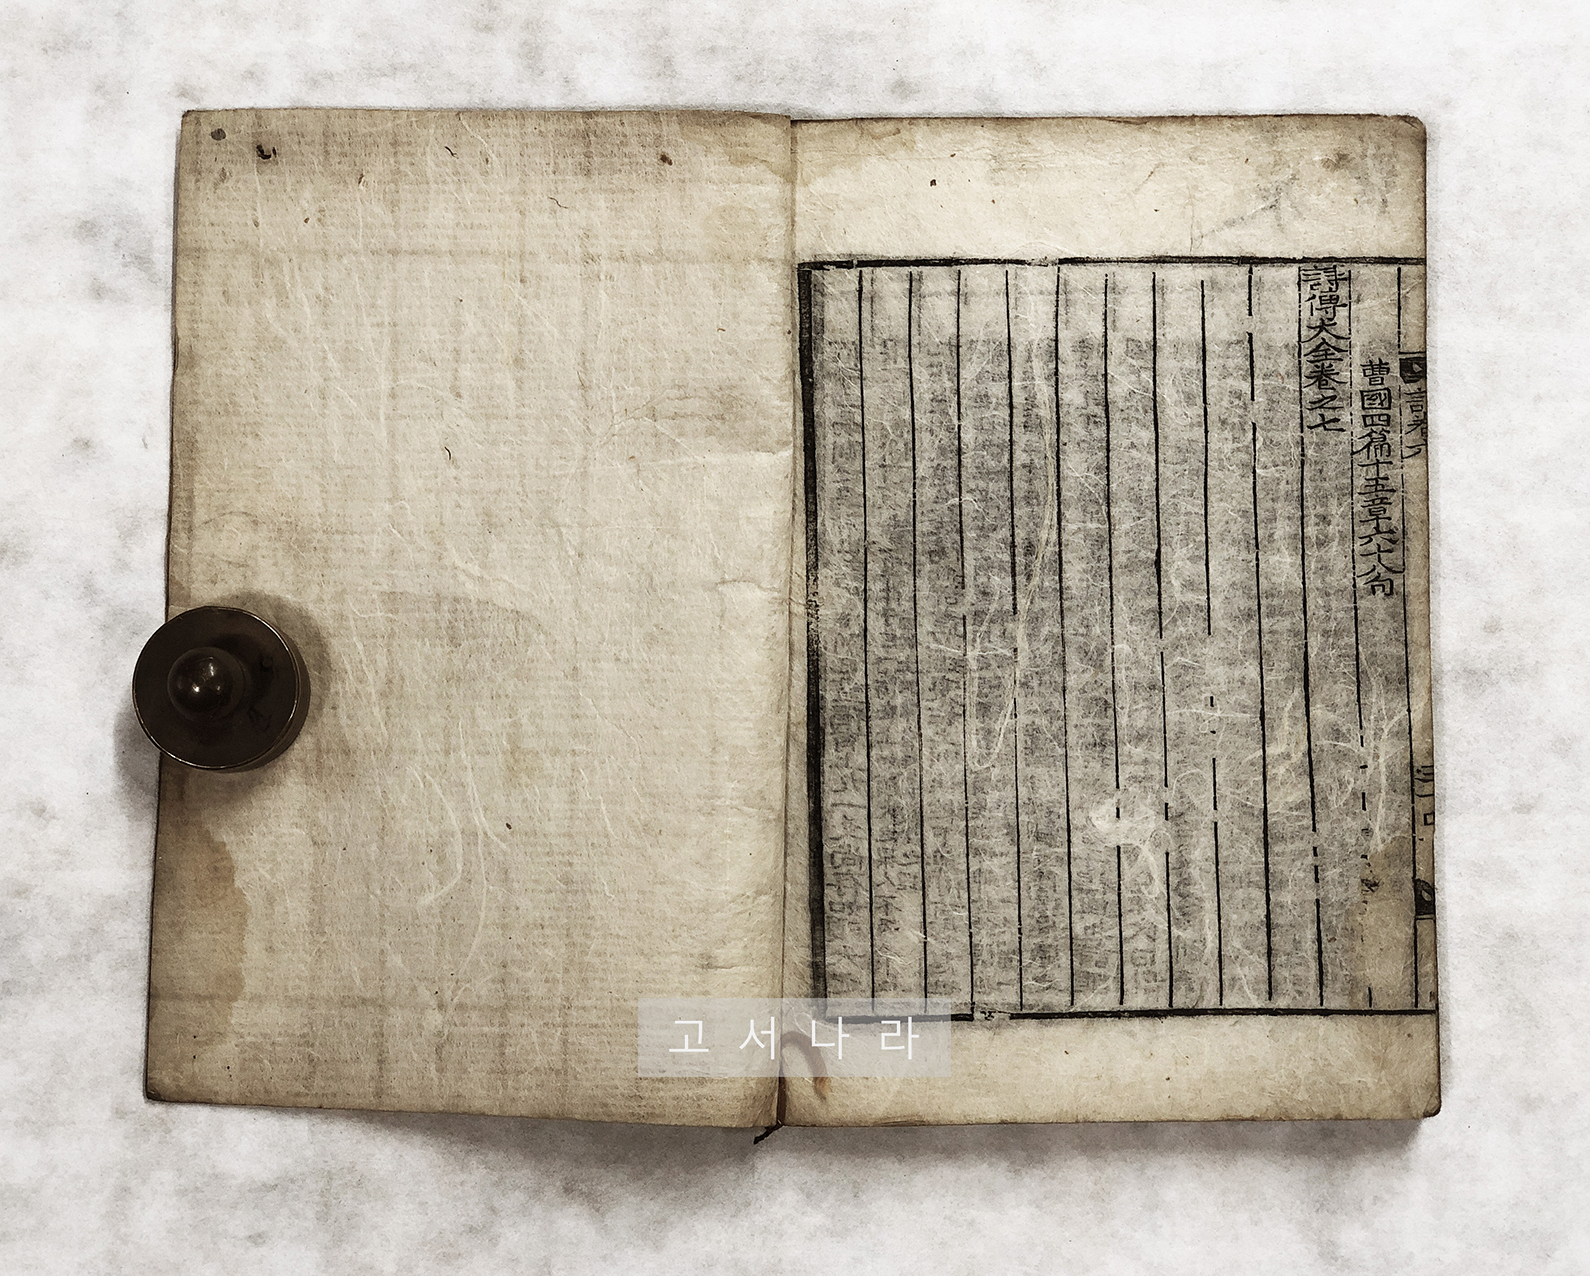 曹國四篇十五章六十八句
詩傳大全卷之七
고서나라